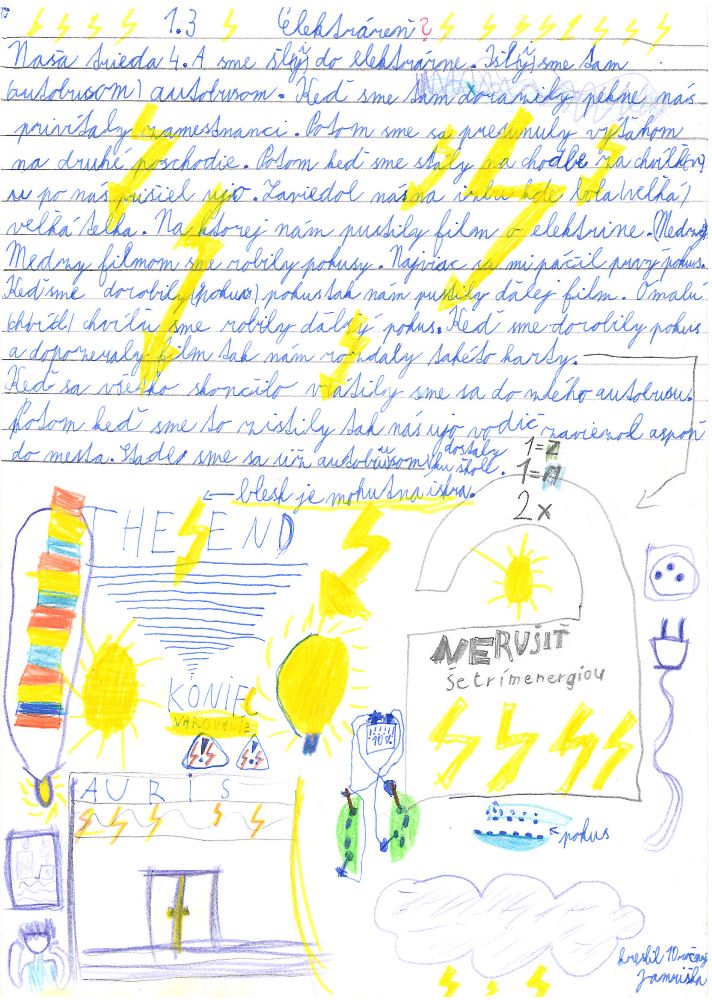 1.3 Elektráreň?
Naša trieda 4.A sme išlÿ do elektrárne. Išlÿ sme tam
(autobusom) autobusom. Keď sme tam dorazily pekne nás
privítaly zamestnanci. Potom sme sa presunuly výťahom
na druhé poschodie. Potom keď sme stály na chodbe za
po nás prišiel ujo. Zaviedol nás na izbu kde bola (velká)
velká telka. Na ktorej nám pustily film o elektrine. (Medzy)
Medzy filmom sme robily pokusy. Najviac sa mi páčil prvý pokus.
Keď sme dorobily (pokus) pokus tak nám pustily ďálej film. O malú
chvílu sme robily ďálšý pokus. Keď sme dorobily pokus
a dopozeraly film tak nám rozdaly takéto karty.
Keď sa všetko skončilo vrátily sme sa do zlého autobusu.
Potom keď sme to zistily tak nás ujo vodič zaviezol aspoň
do mesta. Stadeď sme sa už autobusom dostaly ku škole.
← blesk je mohutná iskra.
1=Z
1=A
2x
THE END
NERUŠIŤ
šetrím energiou
KONIEC
VAROVANIE
10 V.
AURIS
← pokus
kreslil 10 ročný
Jamriška